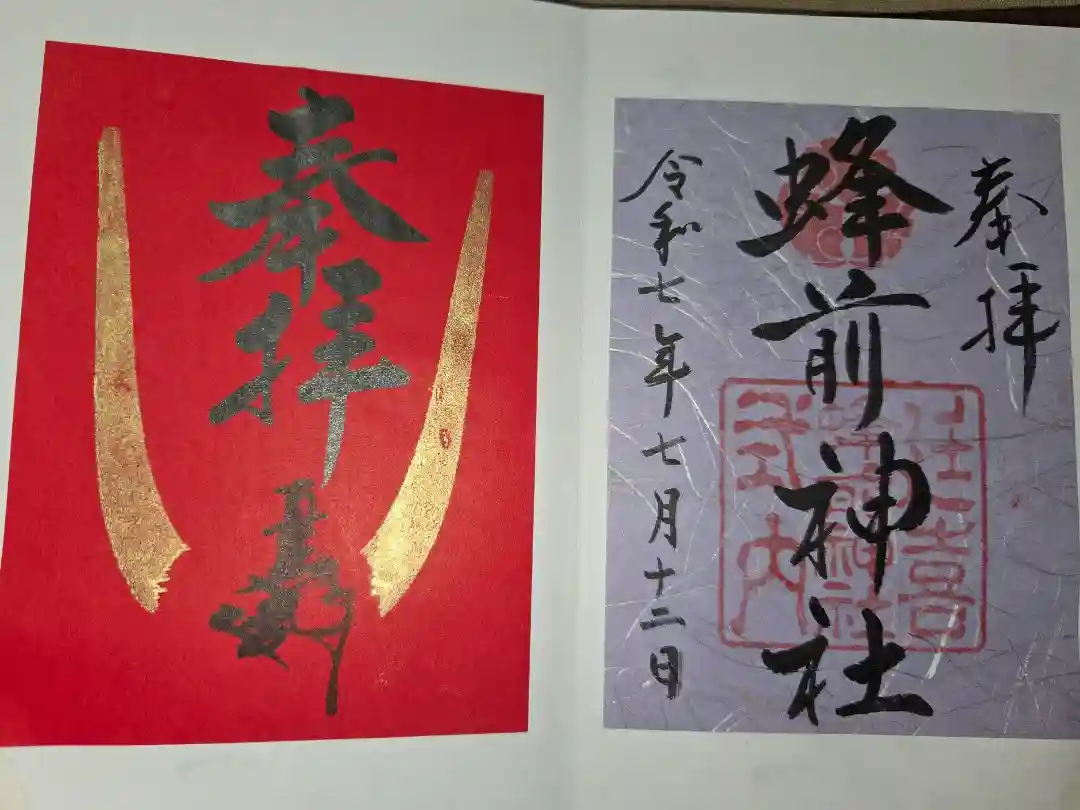 奉拝
奉拝
蜂前神社
式内
令和七年七月十二日